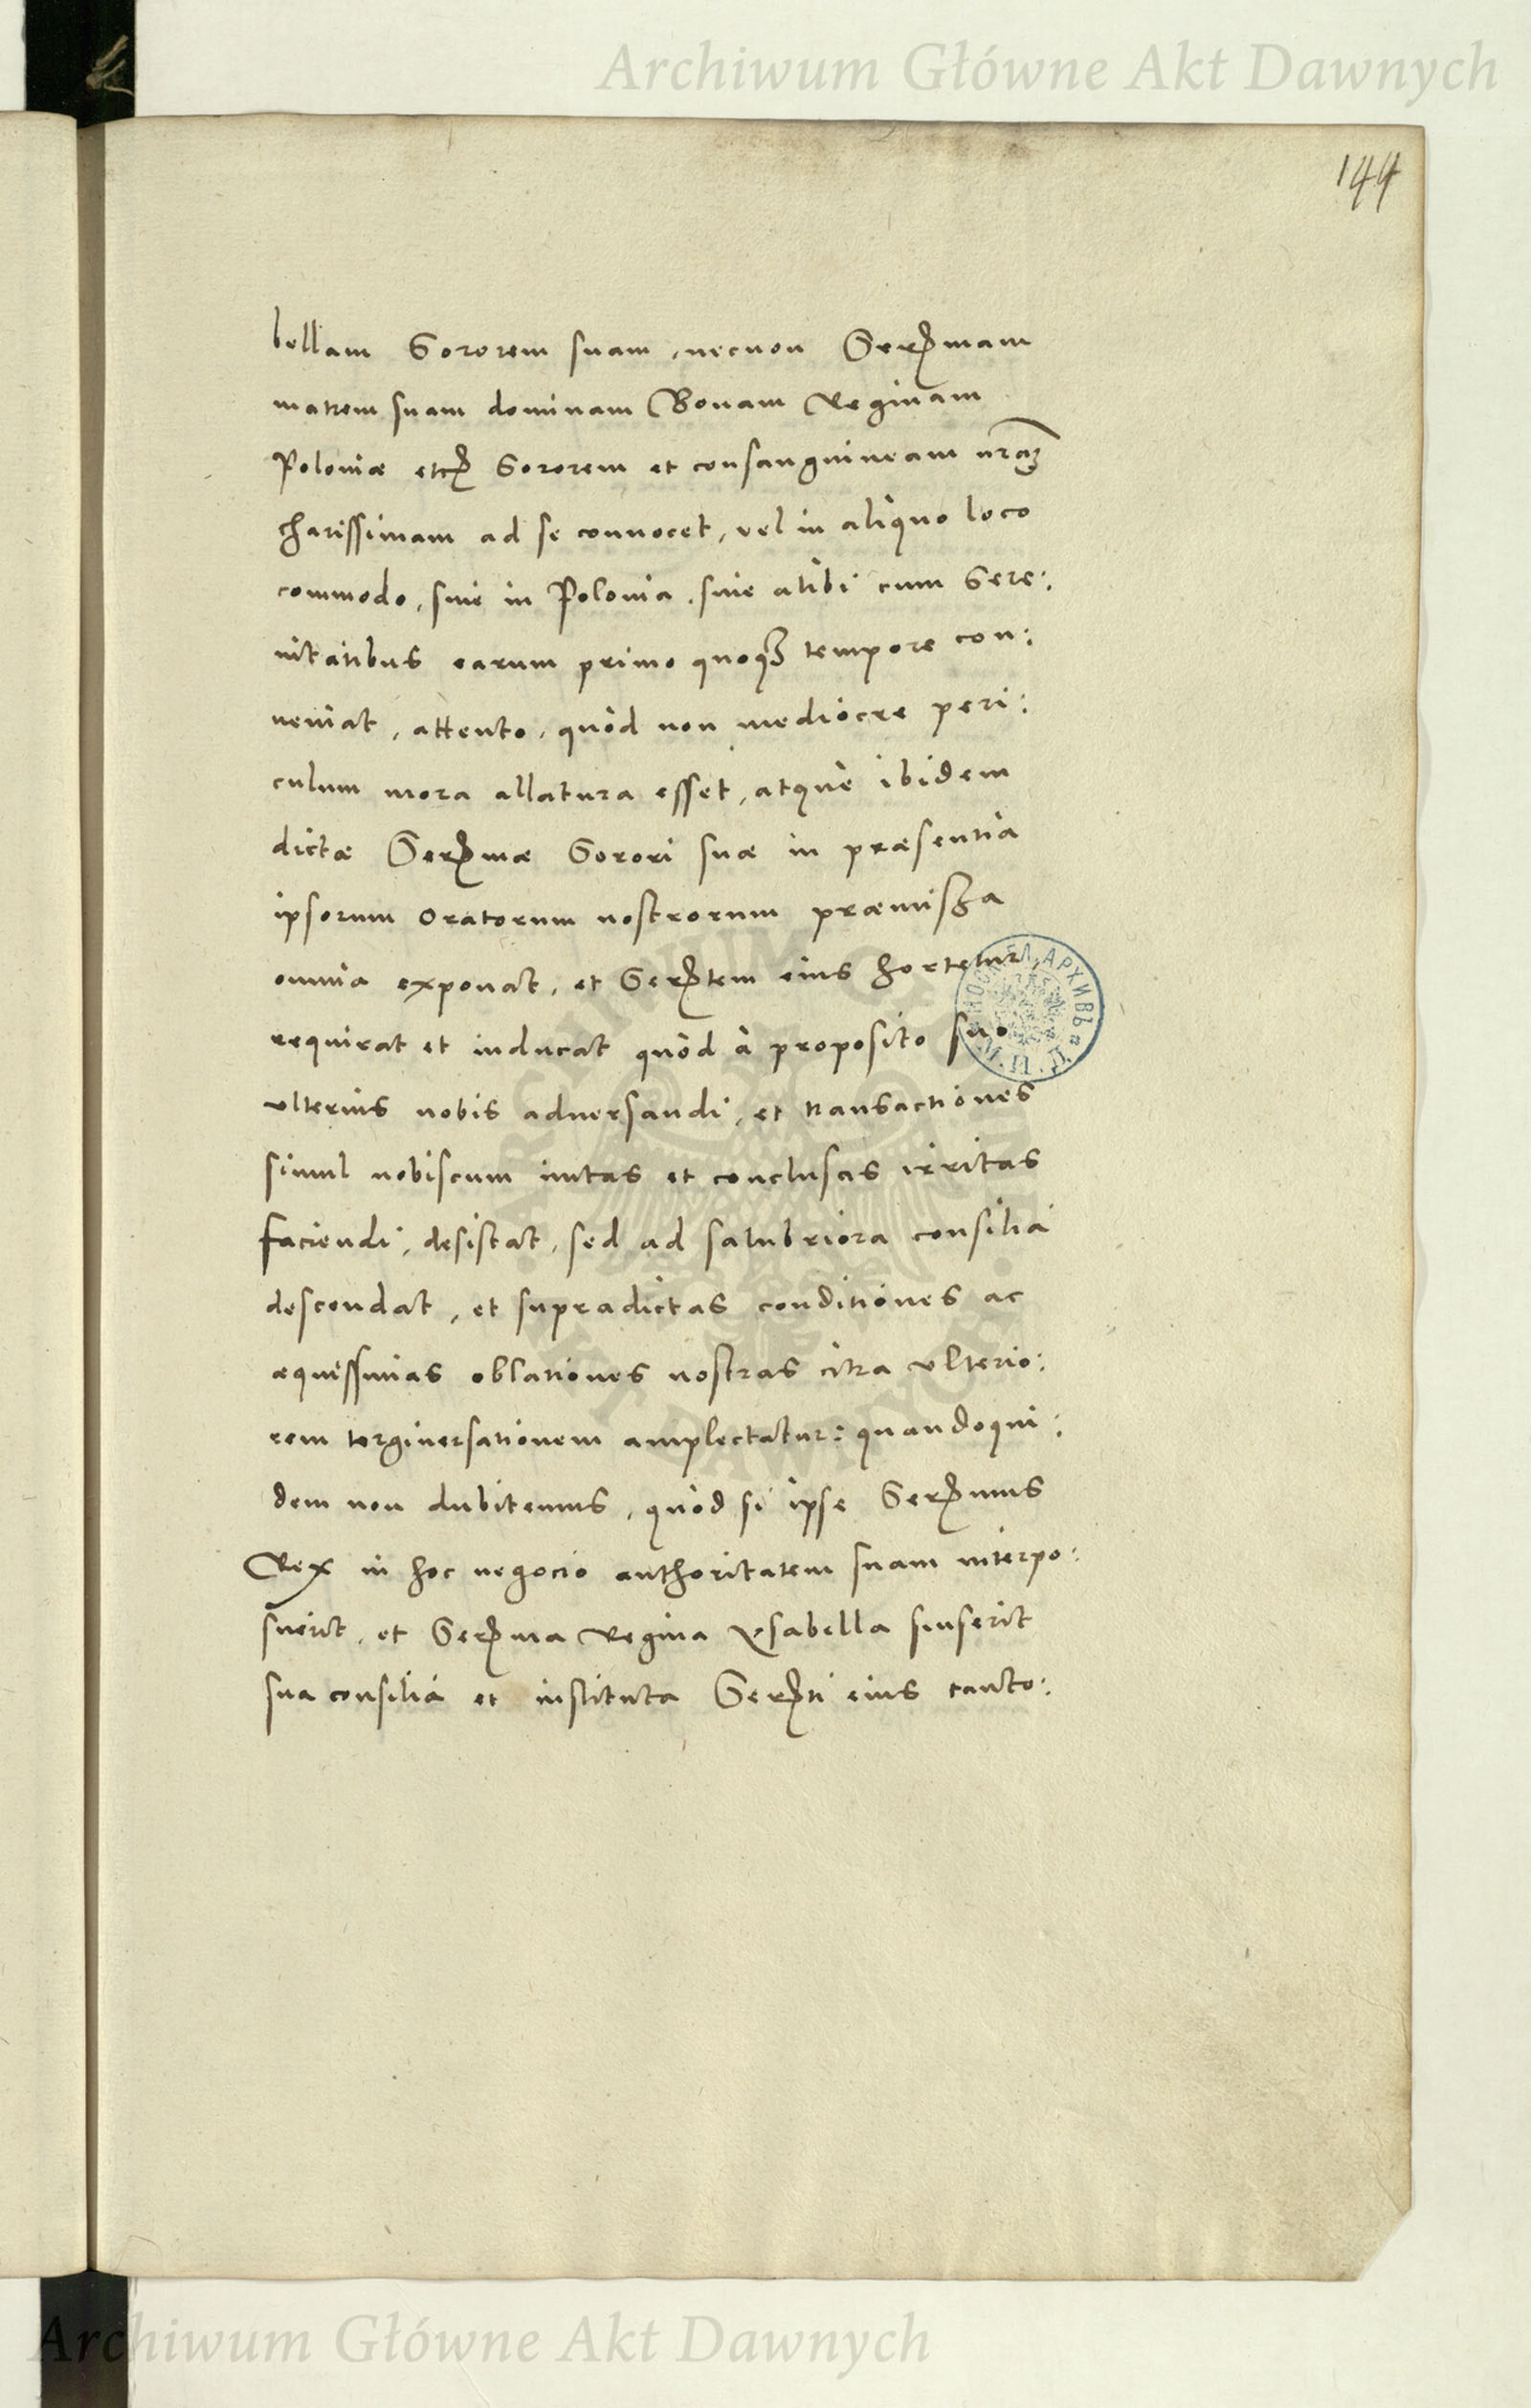 Archiwum Główne Akt Dawnych
144
bellam Sororem suam, necnon Serᵐmam
matrem suam dominam Bonam Reginam
Poloniæ etcꝫ Sororem et consanguineam nram
charissimam ad se conuocet, vel in aliquo loco
commodo, siue in Polonia, siue alibi cum Sere:
nitatibus earum primo quoqꝫ tempore con:
ueniat, attento, quòd non mediocre peri:
culum mora allatura esset, atque ibidem
dictæ Serᵐmæ Sorori suæ in præsentia
ipsorum Oratorum nostrorum præmissa
omnia exponat, et Serᵗtem eius hortetur,
requirat et inducat quòd à proposito suo
vlterius nobis aduersandi, et transactiones
simul nobiscum initas et conclusas irritas
faciendi, desistat, sed ad salubriora consilia
descendat, et supradictas conditiones ac
æquissimas oblationes nostras citra vlterio:
rem tergiuersationem amplectatur: quandoqui:
dem non dubitemus, quòd si ipse Serᵐmus
Rex in hoc negocio authoritatem suam interpo:
suerit, et Serᵐma Regina Ysabella senserit
sua consilia et instituta Serᵗti eius tanto:
Archiwum Główne Akt Dawnych